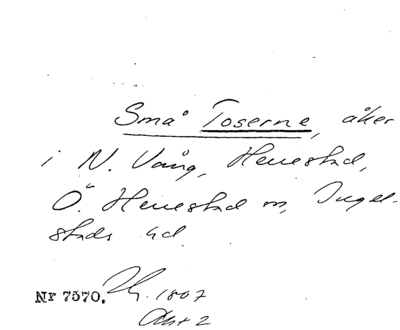 Små Toserne, åker
i N. Vång, Herrestad,
Ö. Herrestad sn, Ingel-
stads hd.
Nr 7570. 1807
Akt 2